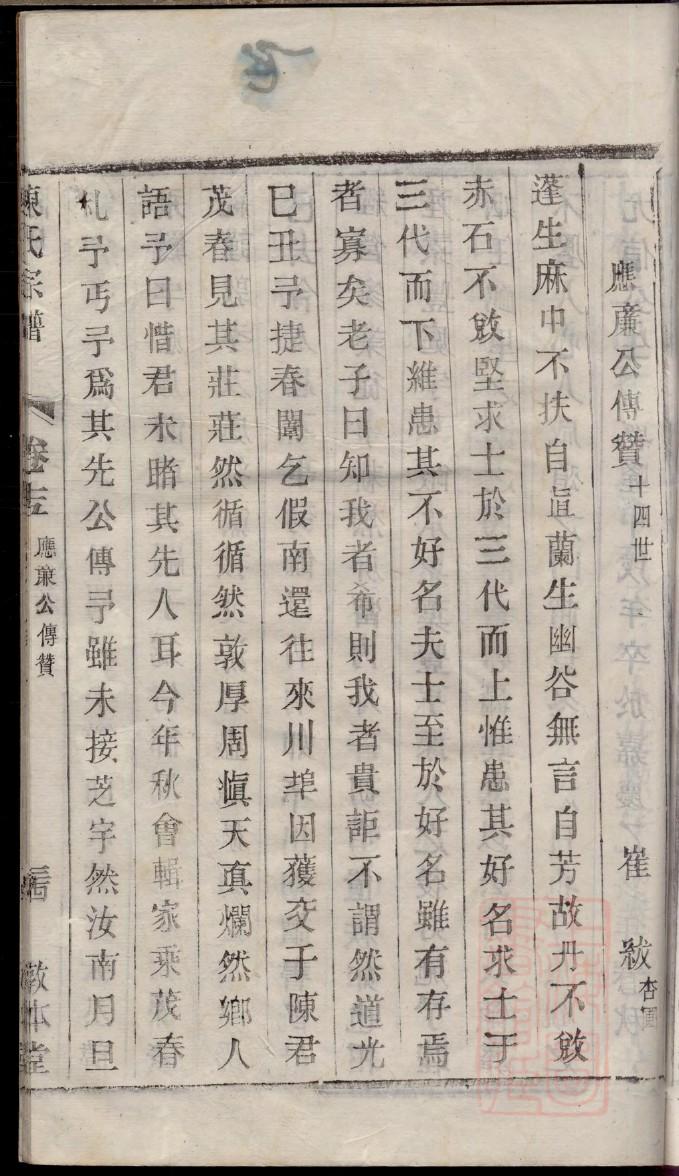 應亷公傳贊 十四世 崔紱 杏園
蓬生麻中不扶自直蘭生幽谷無言自芳故丹不敓
赤石不敓堅求士於三代而上惟患其好名求士于
三代而下維患其不好名夫士至於好名雖有存焉
者寡矣老子曰知我者希則我者貴詎不謂然道光
巳丑予捷春闈乞假南還往來川埠因獲交于陳君
茂春見其莊莊然循循然敦厚周愼天真爛然鄉人
語予曰惜君未睹其先人耳今年秋會輯家乘茂春
札予丐予爲其先公傳予雖未接芝宇然汝南月旦
陳氏宗譜 卷 應亷公傳贊 敬本堂